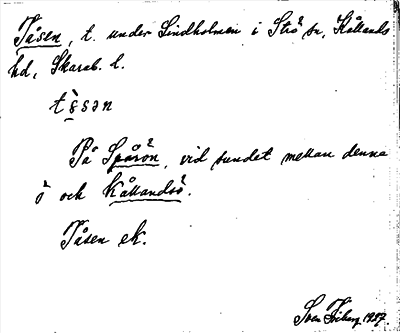 Tåsen, t. under Lindholmen i Strö sn, Kållands
hd, Skarab. l.
På Spårön, vid sundet mellan denna
ö och Kållandsö.
Tåsen ek.
Sven 1927.